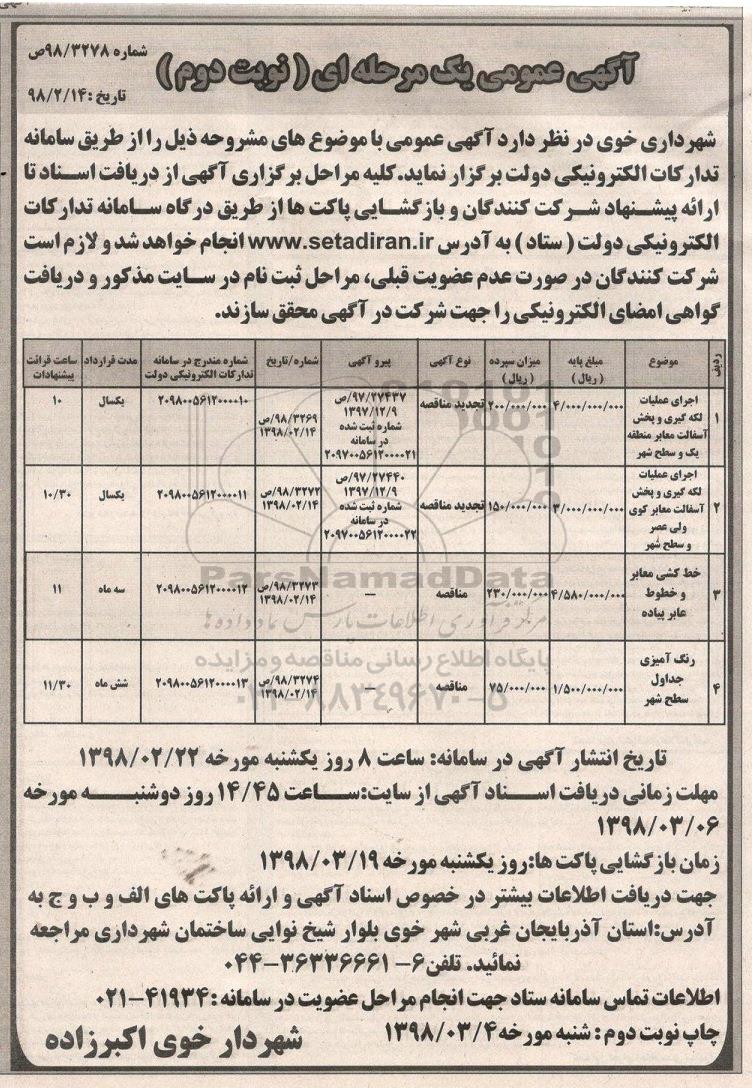 آگهی عمومی یک مرحله ای ( نوبت دوم )
شماره ۹۸/۳۲۷۸ص
تاریخ :۹۸/۲/۱۴
شهرداری خوی در نظر دارد آگهی عمومی با موضوع های مشروحه ذیل را از طریق سامانه
تدارکات الکترونیکی دولت برگزار نماید.کلیه مراحل برگزاری آگهی از دریافت اسناد تا
ارائه پیشنهاد شرکت کنندگان و بازگشایی پاکت ها از طریق درگاه سامانه تدارکات
الکترونیکی دولت ( ستاد ) به آدرس www.setadiran.ir انجام خواهد شد و لازم است
شرکت کنندگان در صورت عدم عضویت قبلی، مراحل ثبت نام در سایت مذکور و دریافت
گواهی امضای الکترونیکی را جهت شرکت در آگهی محقق سازند.
ردیف موضوع مبلغ پایه ( ریال ) میزان سپرده ( ریال ) نوع آگهی پیرو آگهی شماره/تاریخ شماره مندرج در سامانه تدارکات الکترونیکی دولت مدت قرارداد ساعت قرائت پیشنهادات
۱ اجرای عملیات لکه گیری و پخش آسفالت معابر منطقه یک و سطح شهر ۴/۰۰۰/۰۰۰/۰۰۰ ۲۰۰/۰۰۰/۰۰۰ تجدید مناقصه ۹۷/۲۷۴۳۷/ص ۱۳۹۷/۱۲/۹ شماره ثبت شده در سامانه ۲۰۹۷۰۰۵۶۱۲۰۰۰۰۲۱ ۹۸/۳۲۶۹/ص ۱۳۹۸/۰۲/۱۴ ۲۰۹۸۰۰۵۶۱۲۰۰۰۰۱۰ یکسال ۱۰
۲ اجرای عملیات لکه گیری و پخش آسفالت معابر کوی ولی عصر و سطح شهر ۳/۰۰۰/۰۰۰/۰۰۰ ۱۵۰/۰۰۰/۰۰۰ تجدید مناقصه ۹۷/۲۷۴۴۰/ص ۱۳۹۷/۱۲/۹ شماره ثبت شده در سامانه ۲۰۹۷۰۰۵۶۱۲۰۰۰۰۲۲ ۹۸/۳۲۷۲/ص ۱۳۹۸/۰۲/۱۴ ۲۰۹۸۰۰۵۶۱۲۰۰۰۰۱۱ یکسال ۱۰/۳۰
۳ خط کشی معابر و خطوط عابر پیاده ۴/۵۸۰/۰۰۰/۰۰۰ ۲۳۰/۰۰۰/۰۰۰ مناقصه — ۹۸/۳۲۷۳/ص ۱۳۹۸/۰۲/۱۴ ۲۰۹۸۰۰۵۶۱۲۰۰۰۰۱۲ سه ماه ۱۱
۴ رنگ آمیزی جداول سطح شهر ۱/۵۰۰/۰۰۰/۰۰۰ ۷۵/۰۰۰/۰۰۰ مناقصه — ۹۸/۳۲۷۴/ص ۱۳۹۸/۰۲/۱۴ ۲۰۹۸۰۰۵۶۱۲۰۰۰۰۱۳ شش ماه ۱۱/۳۰
ParsNamadData
مرکز فرآوری اطلاعات پارس نماد داده ها
پایگاه اطلاع رسانی مناقصه و مزایده
۰۲۱-۸۸۳۴۹۶۷۰-۵
تاریخ انتشار آگهی در سامانه: ساعت ۸ روز یکشنبه مورخه ۱۳۹۸/۰۲/۲۲
مهلت زمانی دریافت اسناد آگهی از سایت:ساعت ۱۴/۴۵ روز دوشنبه مورخه
۱۳۹۸/۰۳/۰۶
زمان بازگشایی پاکت ها:روز یکشنبه مورخه ۱۳۹۸/۰۳/۱۹
جهت دریافت اطلاعات بیشتر در خصوص اسناد آگهی و ارائه پاکت های الف و ب و ج به
آدرس:استان آذربایجان غربی شهر خوی بلوار شیخ نوایی ساختمان شهرداری مراجعه
نمائید. تلفن۶- ۳۶۳۳۶۶۶۱-۰۴۴
اطلاعات تماس سامانه ستاد جهت انجام مراحل عضویت در سامانه : ۴۱۹۳۴-۰۲۱
چاپ نوبت دوم : شنبه مورخه ۱۳۹۸/۰۳/۴
شهردار خوی اکبرزاده